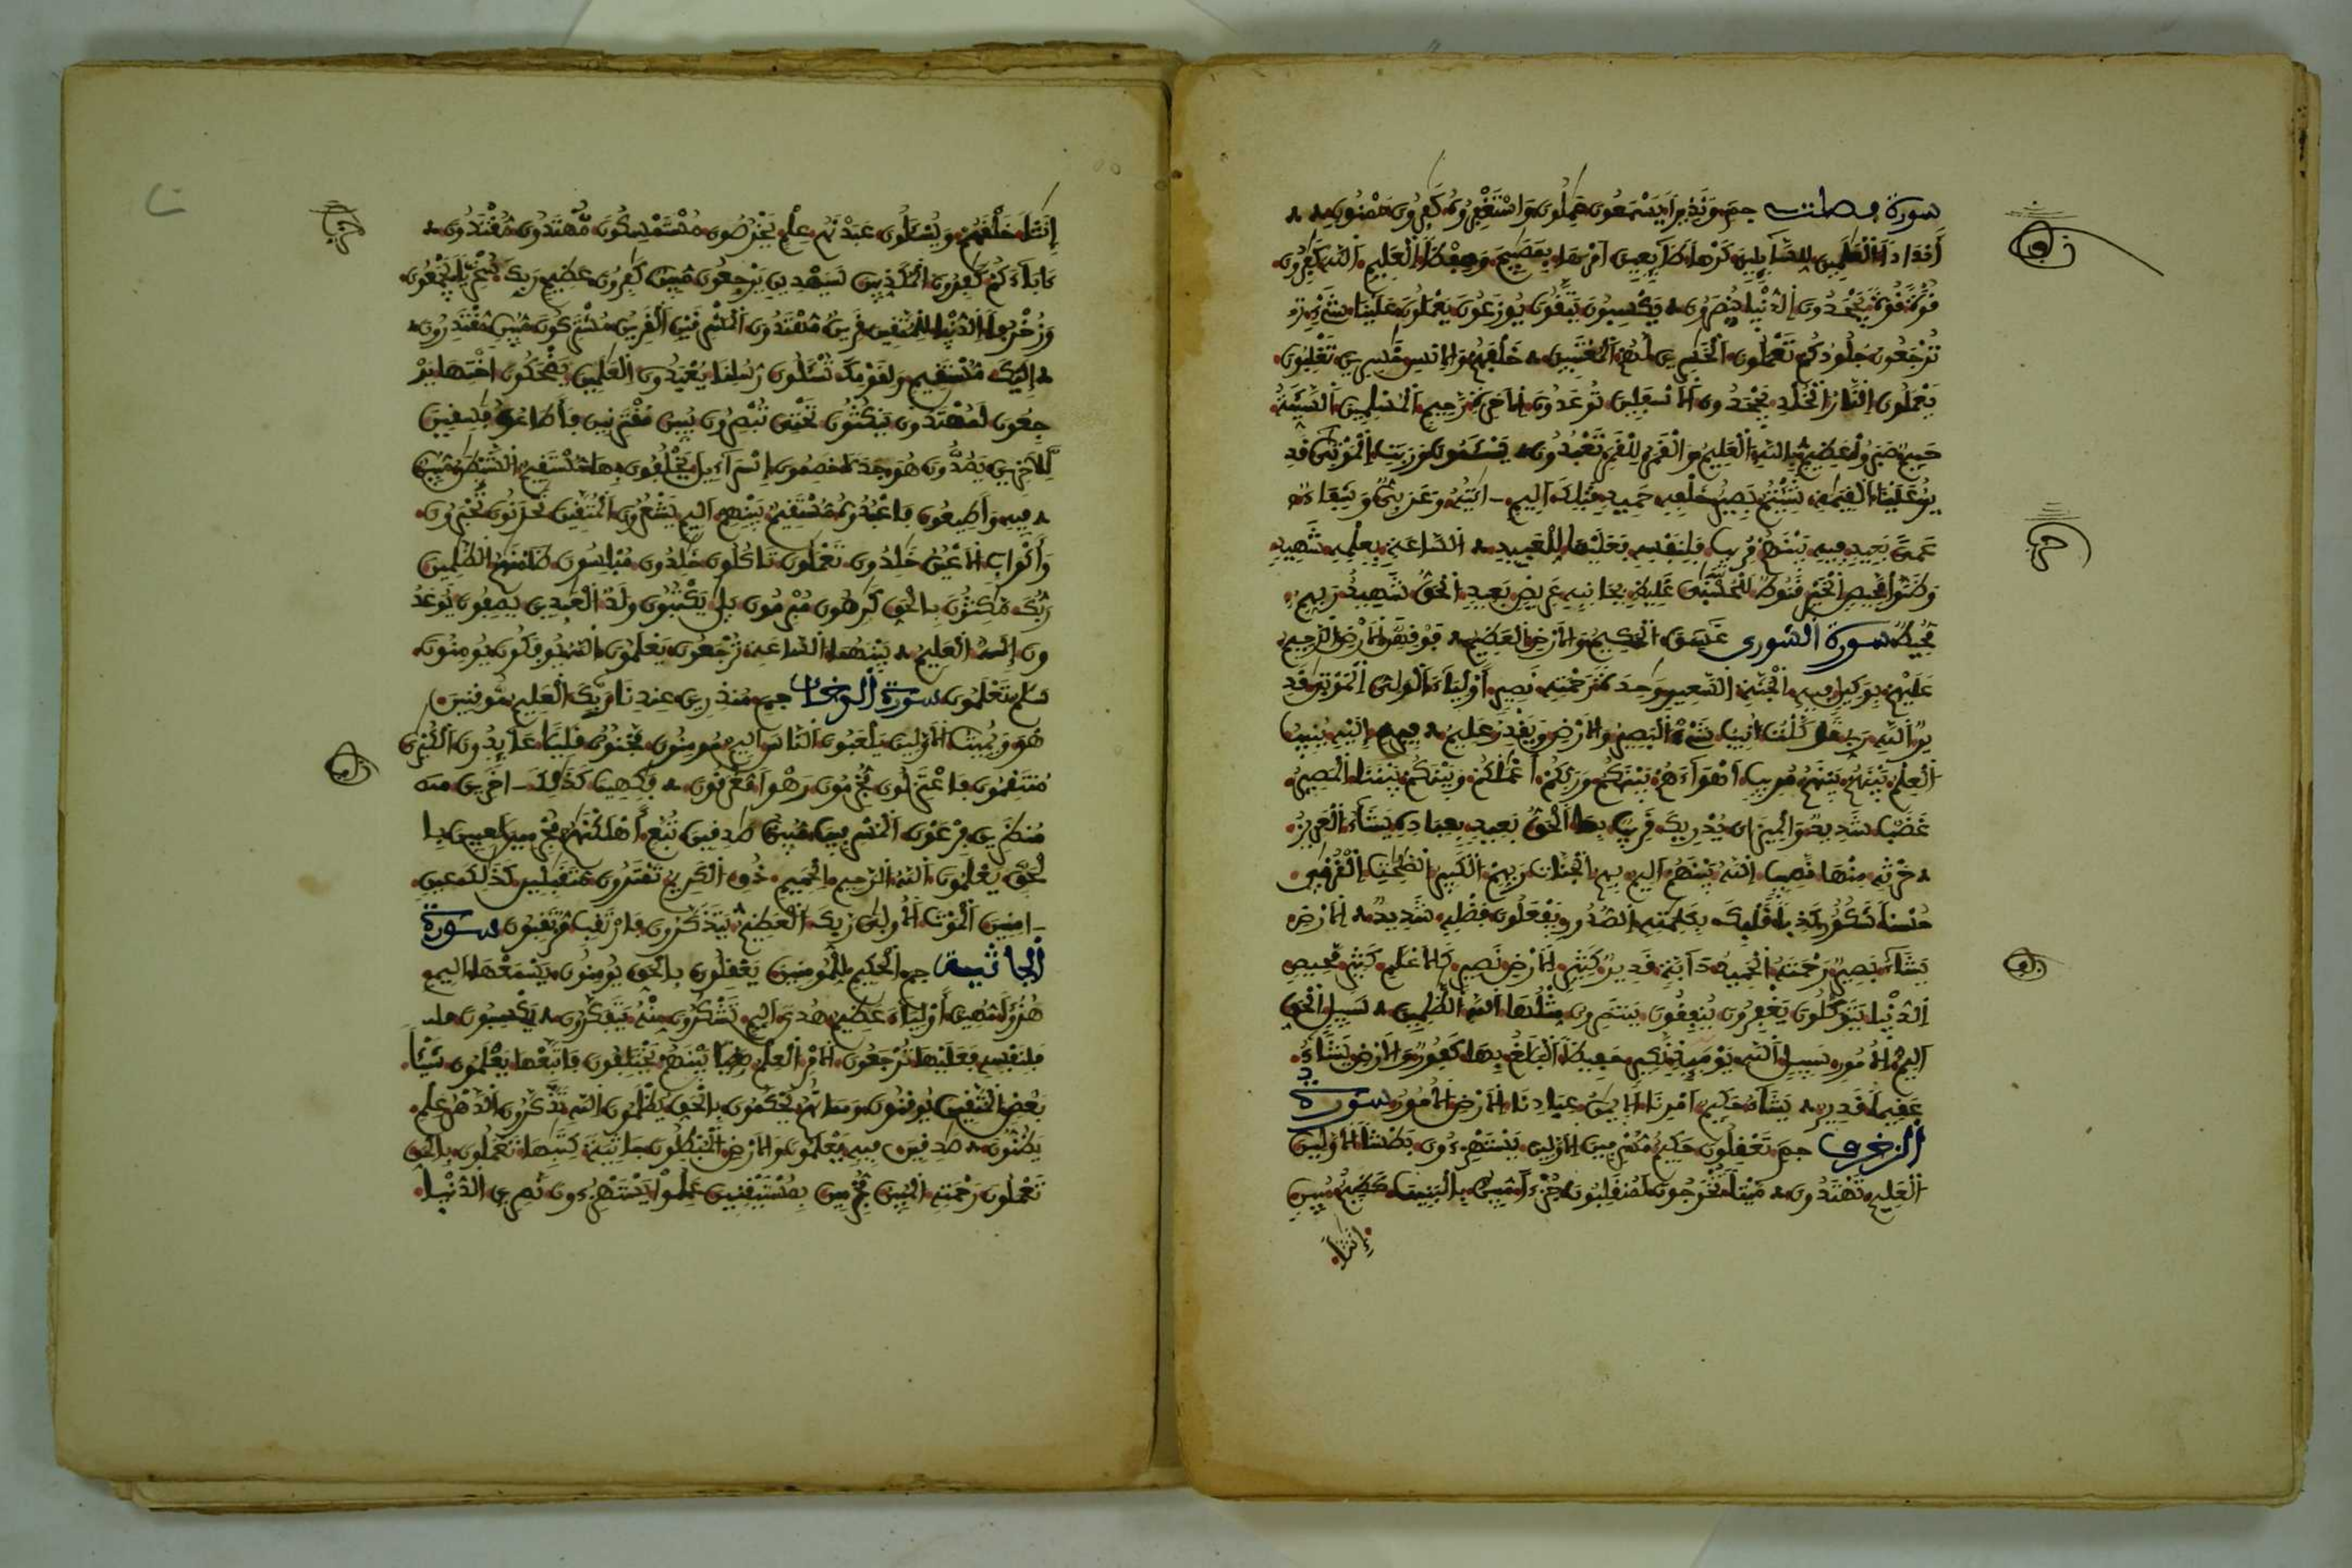 سورة فصلت حم وَنَذِيرًا يَسْمَعُونَ عَٰمِلُونَ وَاسْتَغْفِرُوهُ كَٰفِرُونَ مَمْنُونٍ
أَندَادًا الْعَٰلَمِينَ لِلسَّآئِلِينَ كَرْهًا طَآئِعِينَ أَمْرَهَا بِمَصَٰبِيحَ وَحِفْظًا الْعَلِيمِ اللَّهَ كَٰفِرُونَ
قُوَّةً قُوَّةً يَجْحَدُونَ الدُّنْيَا يُنصَرُونَ يَكْسِبُونَ يَتَّقُونَ يُوزَعُونَ يَعْمَلُونَ عَلَيْنَا شَيْءٍ
تُرْجَعُونَ جُلُودُكُمْ تَعْمَلُونَ الْخَٰسِرِينَ لَهُمْ الْمُعْتَبِينَ خَلْفَهُمْ وَالْإِنسِ خَٰسِرِينَ تَغْلِبُونَ
يَعْمَلُونَ النَّارُ الْخُلْدِ يَجْحَدُونَ الْأَسْفَلِينَ تُوعَدُونَ الْأَخِرَةِ رَّحِيمٍ الْمُسْلِمِينَ السَّيِّئَةُ
حَمِيمٌ صَبَرُوا عَظِيمٍ بِاللَّهِ الْعَلِيمُ وَالْقَمَرُ لِلْقَمَرِ تَعْبُدُونَ يَسْـَٔمُونَ وَرَبَتِ الْمَوْتَىٰ قَدِ
يرٌ عَلَيْنَا الْقِيَٰمَةِ شِئْتُمْ بَصِيرٌ خَلْفِهِ حَمِيدٍ قَبْلِكَ أَلِيمٍ ءَايَٰتُهُ وَعَرَبِيٌّ وَشِفَآءٌ
عَمًى بَعِيدٍ فِيهِ بَيْنَهُمْ مُرِيبٍ فَلِنَفْسِهِ فَعَلَيْهَا لِلْعَبِيدِ السَّاعَةِ بِعِلْمِهِ شَهِيدٍ
وَظَنُّوا مَّحِيصٍ الْخَيْرِ قَنُوطٌ لَلْحُسْنَىٰ غَلِيظٍ بِجَانِبِهِ عَرِيضٍ بَعِيدٍ الْحَقُّ شَهِيدٌ رَبِّهِمْ
مُّحِيطٌ سورة الشورى عَسِقَ الْحَكِيمُ وَالْأَرْضِ الْعَظِيمُ فَوْقِهِنَّ الْأَرْضِ الرَّحِيمُ
عَلَيْهِمْ بِوَكِيلٍ فِيهِ الْجَنَّةِ السَّعِيرِ وَٰحِدَةً رَحْمَتِهِ نَصِيرٍ أَوْلِيَآءَ الْوَلِيُّ الْمَوْتَىٰ قَدِ
يرٌ اللَّهِ رَبِّي تَوَكَّلْتُ أُنِيبُ شَيْءٌ الْبَصِيرُ وَالْأَرْضِ وَيَقْدِرُ عَلِيمٌ فِيهِ إِلَيْهِ يُنِيبُ
الْعِلْمُ بَيْنَهُمْ بَيْنَهُمْ مُرِيبٍ أَهْوَآءَهُمْ بَيْنَكُمُ وَرَبُّكُمْ أَعْمَٰلُكُمْ وَبَيْنَكُمُ بَيْنَنَا الْمَصِيرُ
غَضَبٌ شَدِيدٌ وَالْمِيزَانَ يُدْرِيكَ قَرِيبٌ بِهَا الْحَقُّ بَعِيدٍ بِعِبَادِهِ يَشَآءُ الْعَزِيزُ
حَرْثِهِ مِنْهَا نَّصِيبٍ اللَّهُ بَيْنَهُمْ أَلِيمٌ بِهِمْ الْجَنَّاتِ رَبِّهِمْ الْكَبِيرُ الصَّٰلِحَٰتِ الْقُرْبَىٰ
حُسْنًا شَكُورٌ كَذِبًا قَلْبِكَ بِكَلِمَٰتِهِ الصُّدُورِ وَيَفْعَلُونَ فَضْلِهِ شَدِيدٌ الْأَرْضِ
يَشَآءُ بَصِيرٌ رَحْمَتَهُ الْحَمِيدُ دَآبَّةٍ قَدِيرٌ كَثِيرٍ الْأَرْضِ نَصِيرٍ كَالْأَعْلَٰمِ كَثِيرٍ مَّحِيصٍ
الدُّنْيَا يَتَوَكَّلُونَ يَغْفِرُونَ يُنفِقُونَ يَنتَصِرُونَ مِثْلُهَا اللَّهِ الظَّٰلِمِينَ سَبِيلٍ الْحَقِّ
أَلِيمٌ الْأُمُورِ سَبِيلٍ اللَّهِ يَوْمَئِذٍ نَّكِيرٍ حَفِيظًا الْبَلَٰغُ بِهَا كَفُورٌ وَالْأَرْضِ يَشَآءُ
عَقِيمًا قَدِيرٌ يَشَآءُ حَكِيمٌ أَمْرِنَا الْإِيمَٰنُ عِبَادِنَا الْأَرْضِ الْأُمُورُ سورة
الزخرف حم تَعْقِلُونَ حَكِيمٌ مُّسْرِفِينَ الْأَوَّلِينَ يَسْتَهْزِءُونَ بَطْشًا الْأَوَّلِينَ
الْعَلِيمُ تَهْتَدُونَ مَّيْتًا تُخْرَجُونَ لَمُنقَلِبُونَ جُزْءًا مُّبِينٌ بِالْبَنِينَ كَظِيمٌ مُبِينٍ
إِنَٰثًا
إِنَٰثًا خَلْقَهُمْ وَيُسْـَٔلُونَ عَبَدْنَٰهُم عِلْمٍ يَخْرُصُونَ مُسْتَمْسِكُونَ مُّهْتَدُونَ مُّقْتَدُونَ
ءَابَآءَكُمْ كَٰفِرُونَ الْمُكَذِّبِينَ سَيَهْدِينِ يَرْجِعُونَ مُّبِينٌ كَٰفِرُونَ عَظِيمٍ رَبِّكَ سُخْرِيًّا يَجْمَعُونَ
وَزُخْرُفًا الدُّنْيَا لِلْمُتَّقِينَ قَرِينٌ مُّهْتَدُونَ الْمَشْرِقَيْنِ الْقَرِينُ مُشْتَرِكُونَ مُّبِينٍ مُّقْتَدِرُونَ
إِلَيْكَ مُّسْتَقِيمٍ وَلِقَوْمِكَ تُسْـَٔلُونَ رُّسُلِنَا يُعْبَدُونَ الْعَٰلَمِينَ يَضْحَكُونَ أُخْتِهَا يَرْ
جِعُونَ لَمُهْتَدُونَ يَنكُثُونَ تَحْتِي تُبْصِرُونَ يُبِينُ مُقْتَرِنِينَ فَأَطَاعُوهُ فَٰسِقِينَ
لِّلْأَخِرِينَ يَصُدُّونَ هُوَ جَدَلًا خَصِمُونَ إِسْرَآءِيلَ يَخْلُفُونَ بِهَا مُّسْتَقِيمٌ الشَّيْطَٰنُ مُّبِينٌ
فِيهِ وَأَطِيعُونِ فَاعْبُدُوهُ مُّسْتَقِيمٌ بَيْنِهِمْ أَلِيمٍ يَشْعُرُونَ الْمُتَّقِينَ تَحْزَنُونَ تُحْبَرُونَ
وَأَكْوَابٍ الْأَعْيُنُ خَٰلِدُونَ تَعْمَلُونَ تَاكُلُونَ خَٰلِدُونَ مُبْلِسُونَ ظَلَمْنَٰهُمْ الظَّٰلِمِينَ
رَبُّكَ مَّٰكِثُونَ بِالْحَقِّ كَٰرِهُونَ مُبْرِمُونَ بَلَىٰ يَكْتُبُونَ وَلَدٌ الْعَٰبِدِينَ يَصِفُونَ يُوعَدُ
ونَ إِلَٰهٌ الْعَلِيمُ بَيْنَهُمَا السَّاعَةِ تُرْجَعُونَ يَعْلَمُونَ اللَّهُ يُوفَكُونَ يُومِنُونَ
سَلَٰمٌ تَعْلَمُونَ سورة الدخان حم مُنذِرِينَ عِندِنَا رَّبِّكَ الْعَلِيمُ مُّوقِنِينَ
هُوَ وَيُمِيتُ الْأَوَّلِينَ يَلْعَبُونَ النَّاسَ أَلِيمٌ مُومِنُونَ مَّجْنُونٌ قَلِيلًا عَآئِدُونَ الْكُبْرَىٰ
مُنتَقِمُونَ فَاعْتَزِلُونِ مُّجْرِمُونَ رَهْوًا مُّغْرَقُونَ فَٰكِهِينَ كَذَٰلِكَ ءَاخَرِينَ
مُنظَرِينَ فِرْعَوْنَ الْمُسْرِفِينَ مُّبِينٌ صَٰدِقِينَ تُبَّعٍ أَهْلَكْنَٰهُمْ مُجْرِمِينَ لَٰعِبِينَ بِا
لْحَقِّ يَعْلَمُونَ اللَّهُ الرَّحِيمُ الْحَمِيمِ ذُقْ الْكَرِيمُ تَمْتَرُونَ مُّتَقَٰبِلِينَ كَذَٰلِكَ عِينٍ
ءَامِنِينَ الْمَوْتَ الْأُولَىٰ رَبِّكَ الْعَظِيمُ يَتَذَكَّرُونَ فَارْتَقِبْ مُّرْتَقِبُونَ سورة
الجاثية حم الْحَكِيمِ لِلْمُومِنِينَ يَعْقِلُونَ بِالْحَقِّ يُومِنُونَ يَسْمَعْهَا أَلِيمٍ
هُزُؤًا مُّهِينٌ أَوْلِيَآءَ عَظِيمٌ هُدًى أَلِيمٍ تَشْكُرُونَ مِّنْهُ يَتَفَكَّرُونَ يَكْسِبُونَ
فَلِنَفْسِهِ فَعَلَيْهَا تُرْجَعُونَ الْأَمْرِ الْعِلْمُ بَغْيًا بَيْنَهُمْ يَخْتَلِفُونَ فَاتَّبِعْهَا يَعْلَمُونَ شَيْـًٔا
بَعْضٍ الْمُتَّقِينَ يُوقِنُونَ وَمَمَاتُهُمْ يَحْكُمُونَ بِالْحَقِّ يُظْلَمُونَ اللَّهِ تَذَّكَّرُونَ الدَّهْرُ عِلْمٍ
يَظُنُّونَ صَٰدِقِينَ فِيهِ يَعْلَمُونَ وَالْأَرْضِ الْمُبْطِلُونَ جَاثِيَةً كِتَٰبِهَا تَعْمَلُونَ بِالْحَقِّ
تَعْمَلُونَ رَحْمَتِهِ الْمُبِينُ مُّجْرِمِينَ بِمُسْتَيْقِنِينَ عَمِلُوا يَسْتَهْزِءُونَ نَّٰصِرِينَ الدُّنْيَا